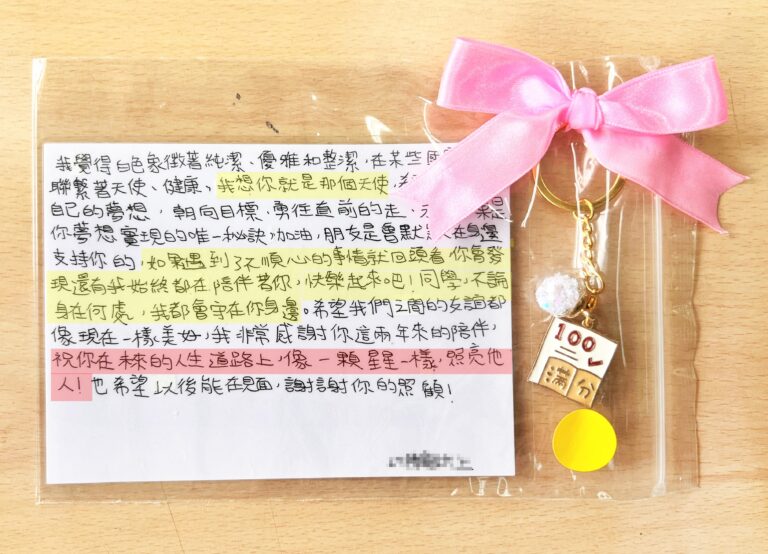 我覺得白色象徵著純潔、優雅和整潔,在某些
聯繫著天使、健康。我想你就是那個天使,
自己的夢想,朝向目標、勇往直前的走,
你夢想實現的唯一秘訣,加油,朋友是會默默在身邊
支持你的,如果遇到了不順心的事情就回頭看,你會發
現還有我始終都在陪伴著你,快樂起來吧!同學,不論
身在何處,我都會守在你身邊。希望我們之間的友誼都
像現在一樣美好,我非常感謝你這兩年來的陪伴,
祝你在未來的人生道路上,像一顆星星一樣,照亮他
人!也希望以後能在見面,謝謝你的照顧!
100
满分